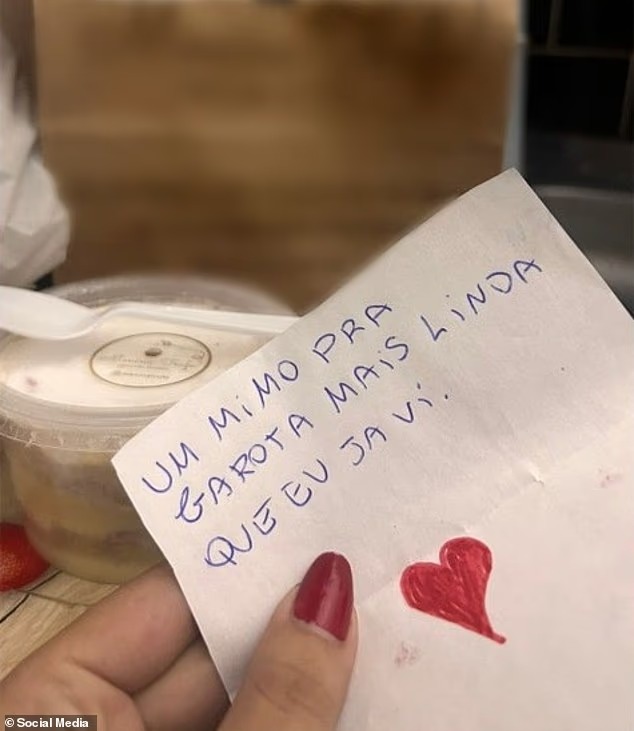 UM MiMO PRA
GAROTA MAiS LiNDA
QUE EU JA Vi.
© Social Media